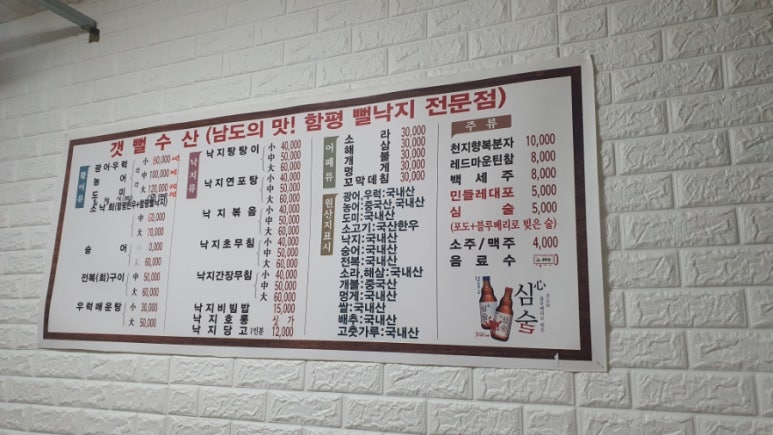 갯뻘수산(남도의 맛! 함평 뻘낙지 전문점)
활어류
광어/우럭
농어
도미
숭어
전복(회)구이 中 50,000
大 60,000
우럭매운탕 小 30,000
大 50,000
낙지류
낙지탕탕이 小 40,000
中 50,000
大 60,000
낙지연포탕 小 40,000
中 50,000
大 60,000
낙지볶음 小 40,000
中 50,000
大 60,000
낙지초무침 小 40,000
中 50,000
大 60,000
낙지간장무침 小 40,000
中 50,000
大 60,000
낙지비빔밥 15,000
낙지호롱 시가
낙지당고 1인분 12,000
어패류
소라 30,000
해삼 30,000
개불 30,000
멍게 30,000
꼬막데침 30,000
원산지표시
광어,우럭:국내산
농어:중국산,국내산
도미:국내산
소고기:국산한우
낙지:국내산
숭어:국내산
전복:국내산
소라,해삼:국내산
개불:중국산
멍게:국내산
쌀:국내산
배추:국내산
고춧가루:국내산
주류
천지향복분자 10,000
레드마운틴참 8,000
백세주 8,000
민들레대포 5,000
심술 5,000
(포도+블루베리로 빚은 술)
소주/맥주 4,000
음료수
心
심술